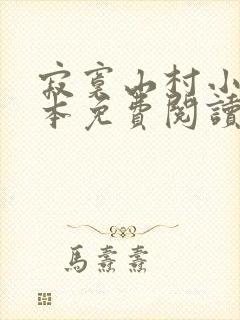 寂寞山村小
本免費閱讀
馬燾燾